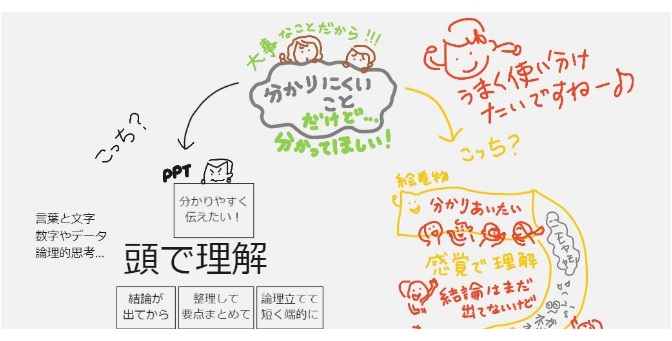 大事なことだから!!!
分かりにくい
こと
だけど…
分かってほしい!
うまく使い分け
たいですねー♪
こっち?
こっち?
PPT
分かりやすく
伝えたい!
言葉と文字
数字やデータ
論理的思考...
頭で理解
結論が
出てから
整理して
要点まとめて
論理立てて
短く端的に
絵巻物
分かりあいたい
感覚で理解
結論はまだ
出てないけど